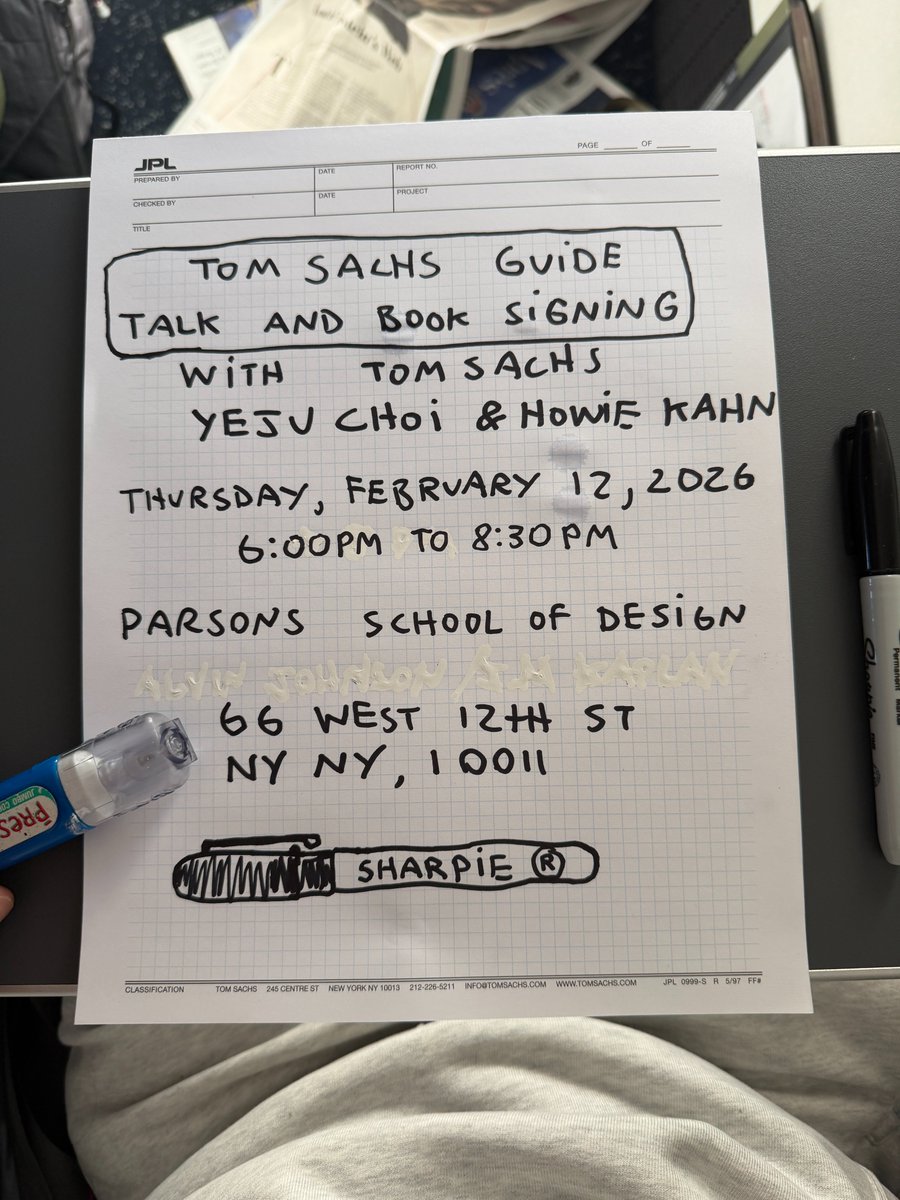 JPL
PAGE ____ OF ____
PREPARED BY DATE REPORT NO.
CHECKED BY DATE PROJECT
TITLE
TOM SACHS GUiDE
TALK AND BOOK SiGNiNG
WiTH TOM SACHS
YEJU CHOi & HOWiE KAHN
THURSDAY, FEBRUARY 12, 2026
6:00PM TO 8:30PM
PARSONS SCHOOL OF DESiGN
66 WEST 12TH ST
NY NY, 10011
SHARPiE ®
CLASSIFICATION TOM SACHS 245 CENTRE ST NEW YORK NY 10013 212-226-5211 INFO@TOMSACHS.COM WWW.TOMSACHS.COM JPL 0999-S R 5/97 FF#
Sharpie
Permanent